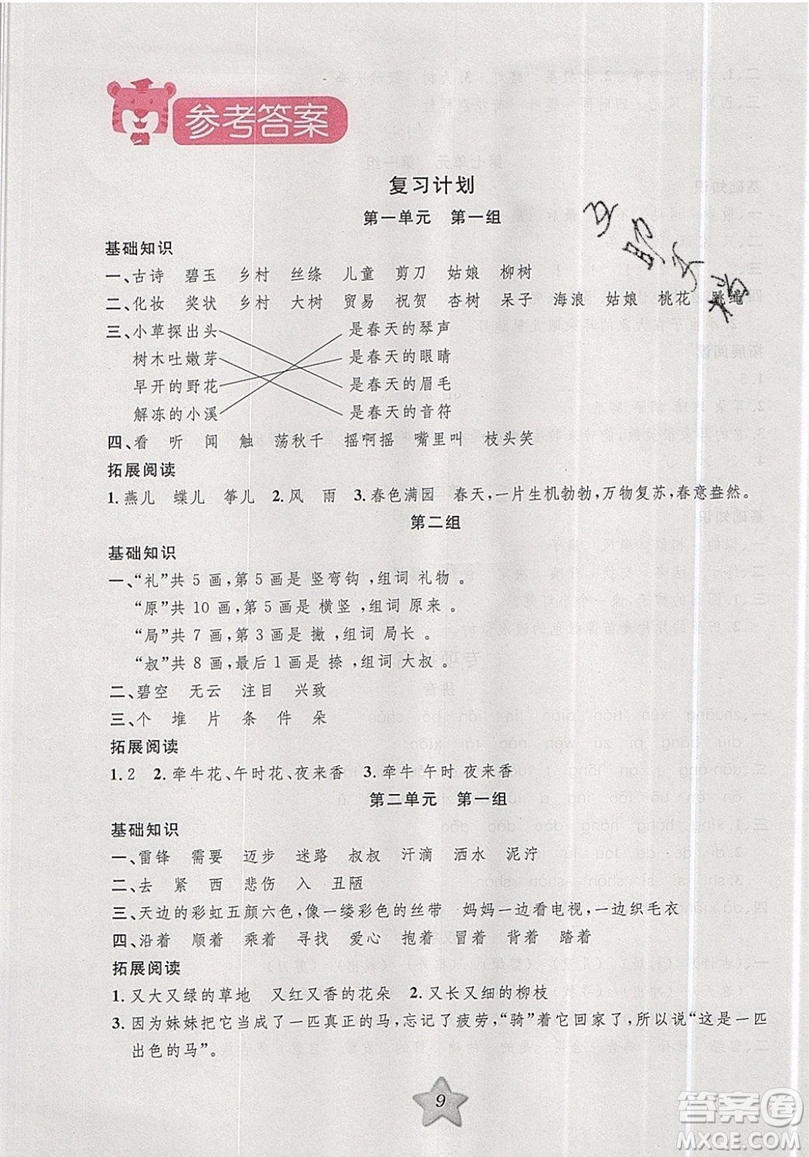 参考答案
复习计划
第一单元 第一组
基础知识
一、古诗 碧玉 乡村 丝绦 儿童 剪刀 姑娘 柳树
二、化妆 奖状 乡村 大树 贸易 祝贺 杏树 呆子 海浪 姑娘 桃花 跳绳
三、小草探出头 是春天的琴声
树木吐嫩芽 是春天的眼睛
早开的野花 是春天的眉毛
解冻的小溪 是春天的音符
四、看 听 闻 触 荡秋千 摇啊摇 嘴里叫 枝头笑
拓展阅读
1.燕儿 蝶儿 筝儿 2.风 雨 3.春色满园 春天,一片生机勃勃,万物复苏,春意盎然。
第二组
基础知识
一、“礼”共 5 画,第 5 画是 竖弯钩,组词 礼物 。
“原”共 10 画,第 5 画是 横竖,组词 原来 。
“局”共 7 画,第 3 画是 撇,组词 局长 。
“叔”共 8 画,最后 1 画是 捺,组词 大叔 。
二、碧空 无云 注目 兴致
三、个 堆 片 条 件 朵
拓展阅读
1.2 2.牵牛花、午时花、夜来香 3.牵牛 午时 夜来香
第二单元 第一组
基础知识
一、雷锋 需要 迈步 迷路 叔叔 汗滴 洒水 泥泞
二、去 紧 西 悲伤 入 丑陋
三、天边的彩虹五颜六色,像一缕彩色的丝带 妈妈一边看电视,一边织毛衣
四、沿着 顺着 乘着 寻找 爱心 抱着 冒着 背着 踏着
拓展阅读
1.又大又绿的草地 又红又香的花朵 2.又长又细的柳枝
3.因为妹妹把它当成了一匹真正的马,忘记了疲劳,“骑”着它回家了,所以说“这是一匹
出色的马”。
9
答案圈
MXQE.COM